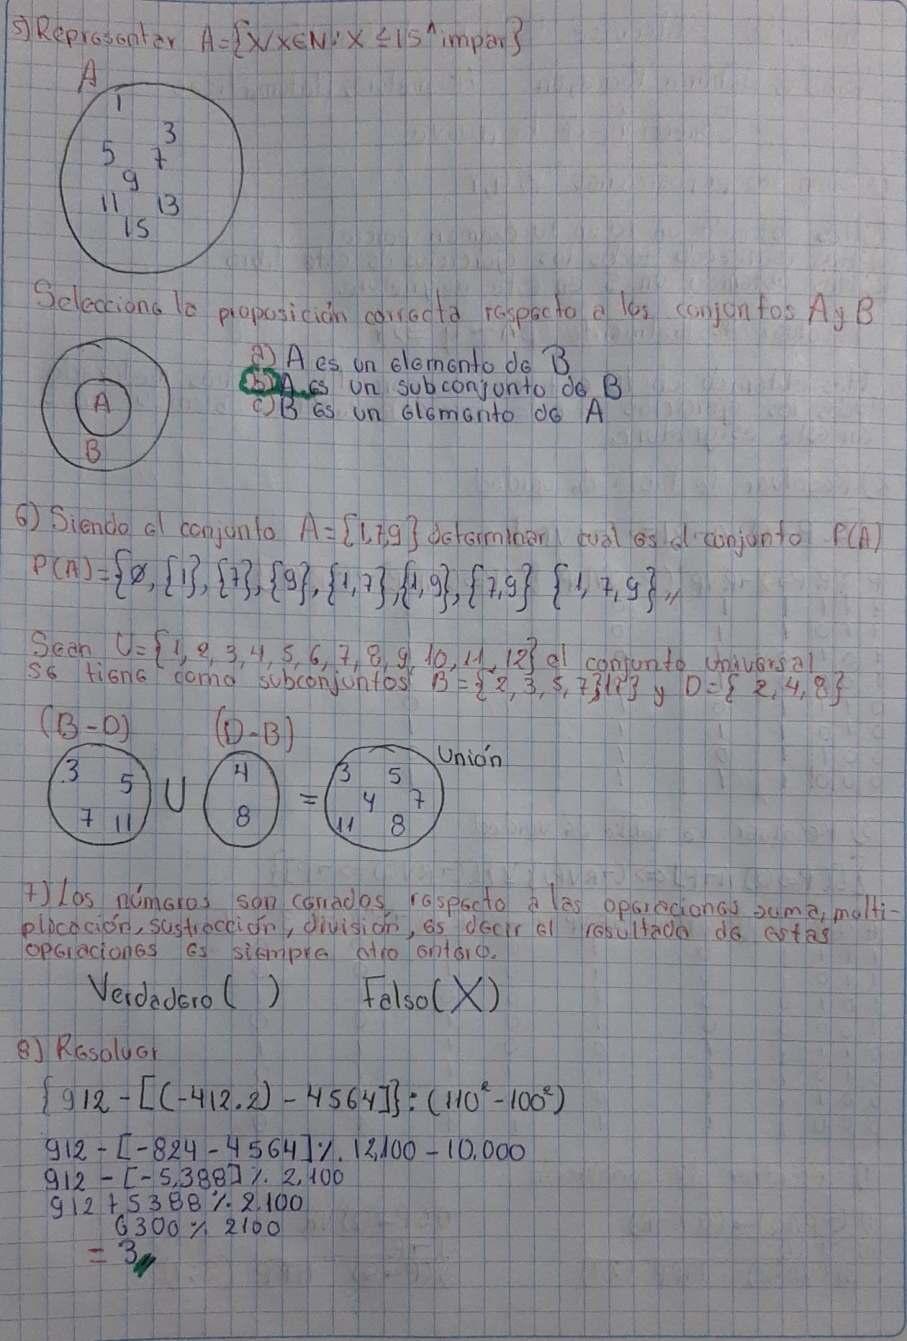 5) Representar A={X/X∈N; X ≤15 ^ impar}
A
1
3
5 7
9
11 13
15
Selecciona la proposición correcta respecto a los conjuntos A y B
a) A es un elemento de B
b) A es un subconjunto de B
c) B es un elemento de A
A
B
6) Siendo el conjunto A={1,7,9} determinar cual es el conjunto P(A)
P(A)={ø, {1}, {7}, {9}, {1,7}, {1,9}, {7,9} {1,7,9},,
Sean U={1,2,3,4,5,6,7,8,9,10,11,12} el conjunto universal
se tiene como subconjuntos B={2,3,5,7}11} y D={2,4,8}
(B-D) (D-B)
Unión
3 5 U 4 = 3 5
7 11 8 4 7
11 8
7) Los números son cerrados respecto a las operaciones suma, multi-
plicación, sustracción, división, es decir el resultado de estas
operaciones es siempre otro entero.
Verdadero ( ) Falso (X)
8) Resolver
{912-[(-412.2)-4564]}:(110²-100²)
912-[-824-4564]%. 12,100-10.000
912-[-5,388]%. 2,100
912+5388%. 2.100
6300%. 2100
= 3,,